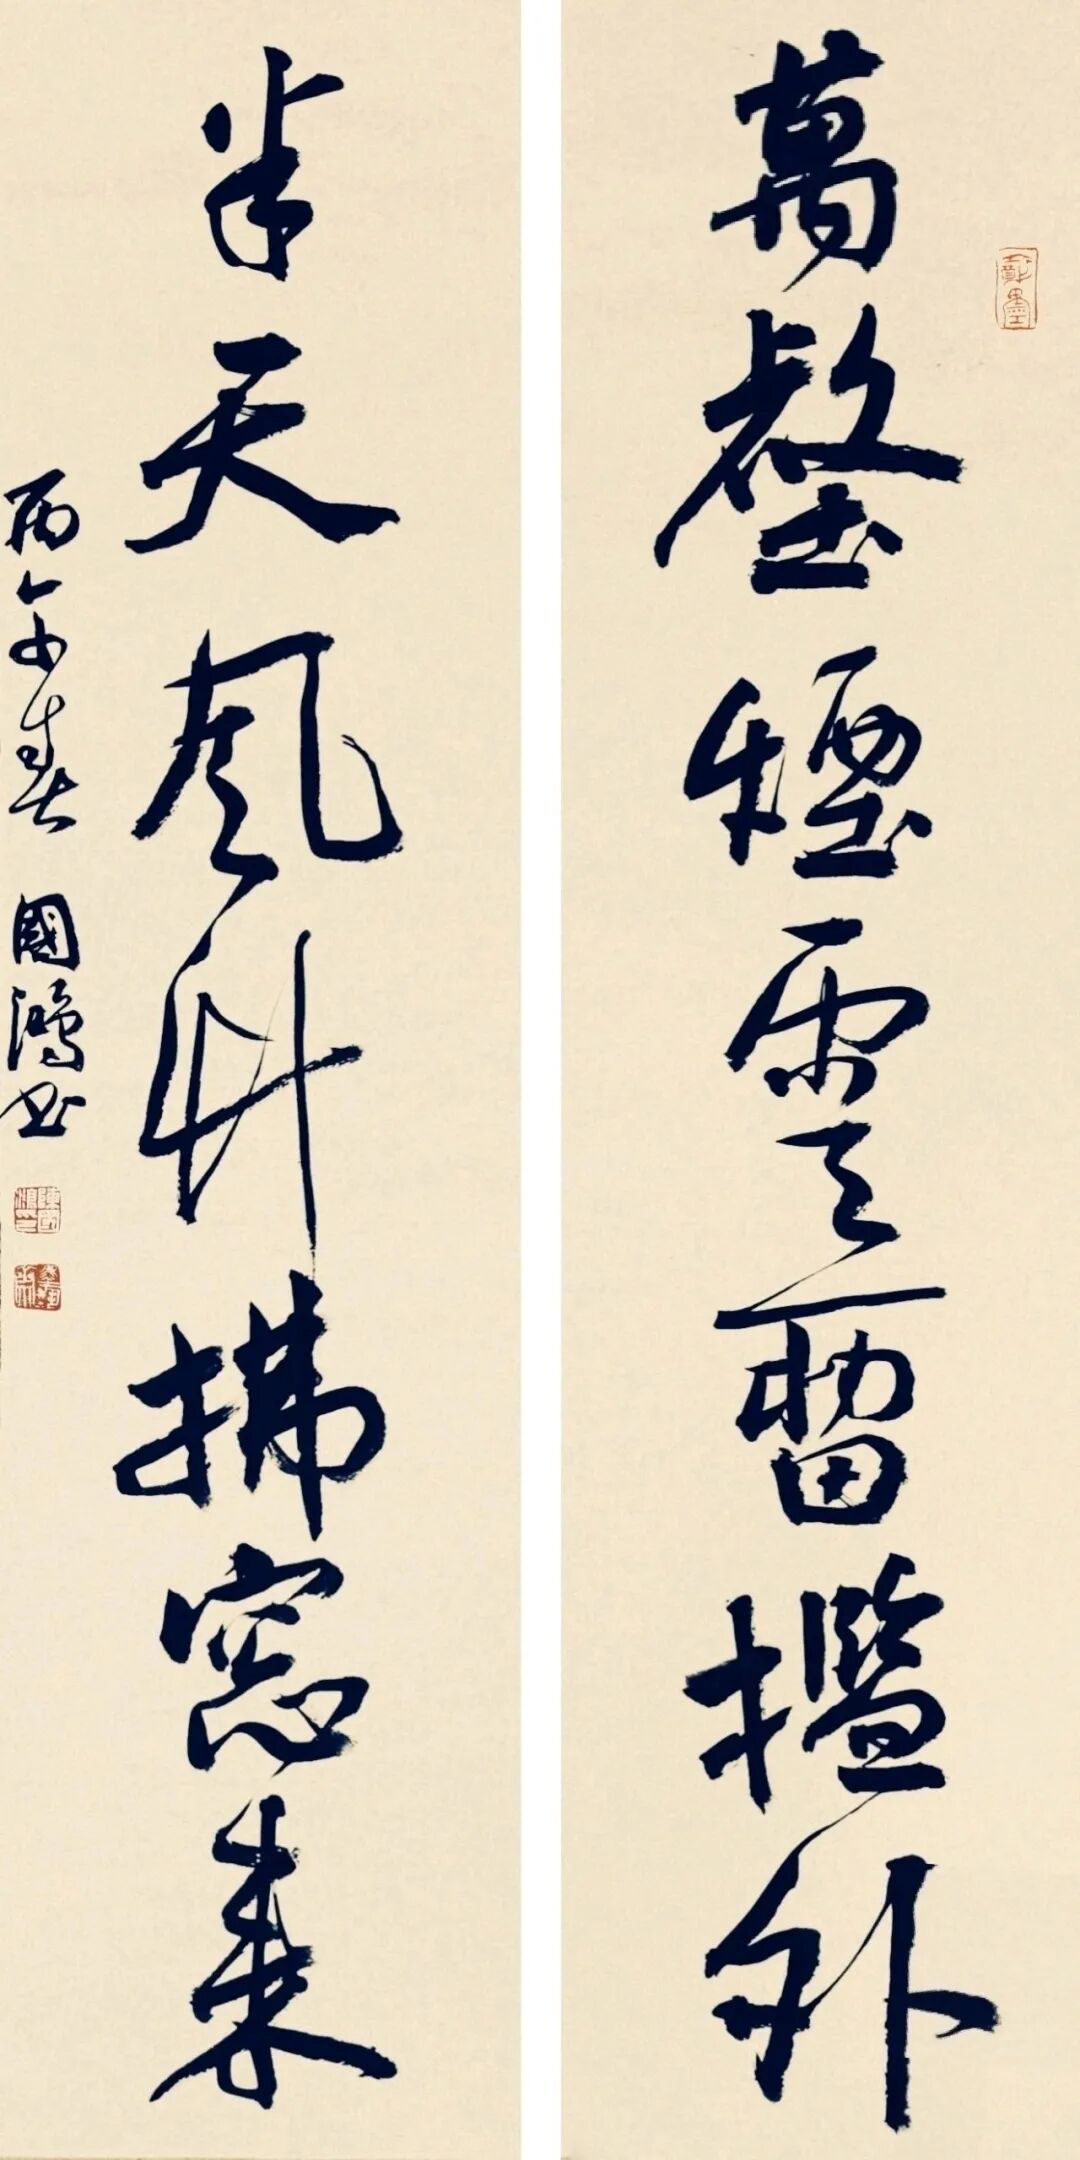 萬壑煙雲留檻外
半天風竹拂窗來
丙午春 國鴻書